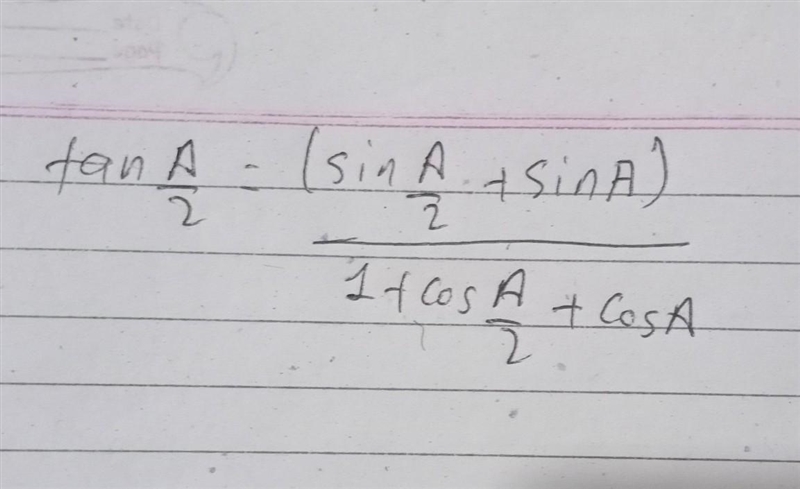 tan A/2 = (sin A/2 + sinA)
1 + cos A/2 + cosA